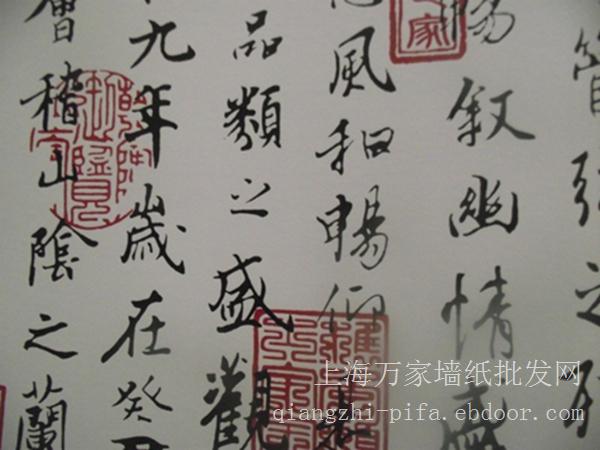 管弦之
暢叙幽情
風和暢仰
品類之盛觀
九年歲在癸丑
會稽山陰之蘭
上海万家墙纸批发网
qiangzhi-pifa.ebdoor.com